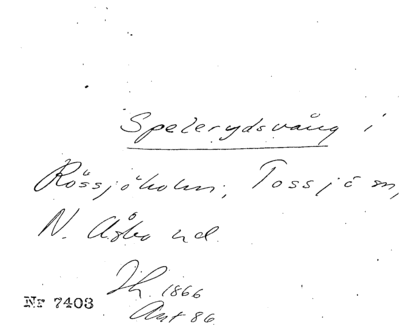 Spelerydsvång i
Rössjöholm, Tossjö sn,
N. Åsbo hd.
Jh 1866
Ant 86
Nr 7403